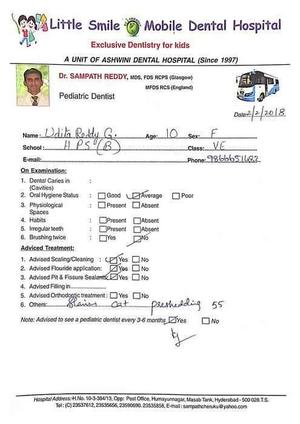 Little Smile Mobile Dental Hospital
Exclusive Dentistry for kids
A UNIT OF ASHWINI DENTAL HOSPITAL (Since 1997)
Dr. SAMPATH REDDY, MDS, FDS RCPS (Glasgow)
MFDS RCS (England)
Pediatric Dentist
Date: 2/2/2018
Name: Udita Reddy G. Age: 10 Sex: F
School: HPS (B) Class: VE
E-mail: Phone: 9866651683
On Examination:
1. Dental Caries in :
(Cavities)
2. Oral Hygiene Status : Good Average Poor
3. Physiological : Present Absent
Spaces
4. Habits : Present Absent
5. Irregular teeth : Present Absent
6. Brushing twice : Yes No
Adviced Treatment:
1. Advised Scaling/Cleaning : Yes No
2. Advised Flouride application : Yes No
3. Advised Pit & Fissure Sealants : Yes No
4. Advised Filling in
5. Advised Orthodontic treatment : Yes No
6. Others: preshedding 55
Note: Advised to see a pediatric dentist every 3-6 months Yes No
Hospital Address: H.No. 10-3-304/13, Opp: Post Office, Humayunnagar, Masab Tank, Hyderabad - 500 028 T.S.
Tel: (C) 23537612, 23535656, 23590690, 23535858, E-mail : sampathcheruku@yahoo.com